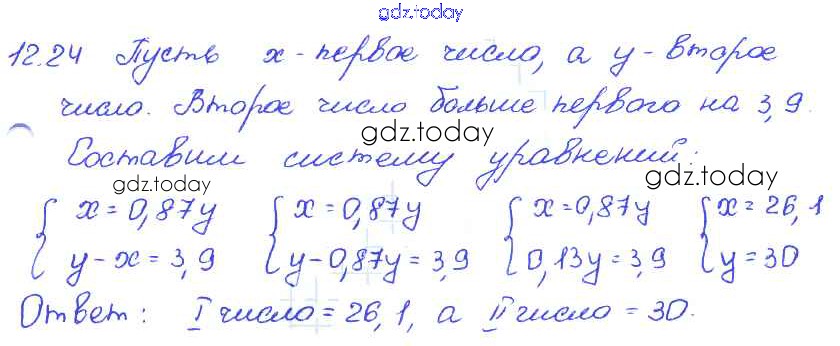 gdz.today
12.24 Пусть x - первое число, а y - второе
число. Второе число больше первого на 3,9.
gdz.today
Составим систему уравнений:
gdz.today gdz.today
{x = 0,87y {x = 0,87y {x = 0,87y {x = 26,1
{y - x = 3,9 {y - 0,87y = 3,9 {0,13y = 3,9 {y = 30
Ответ: I число = 26,1, а II число = 30.